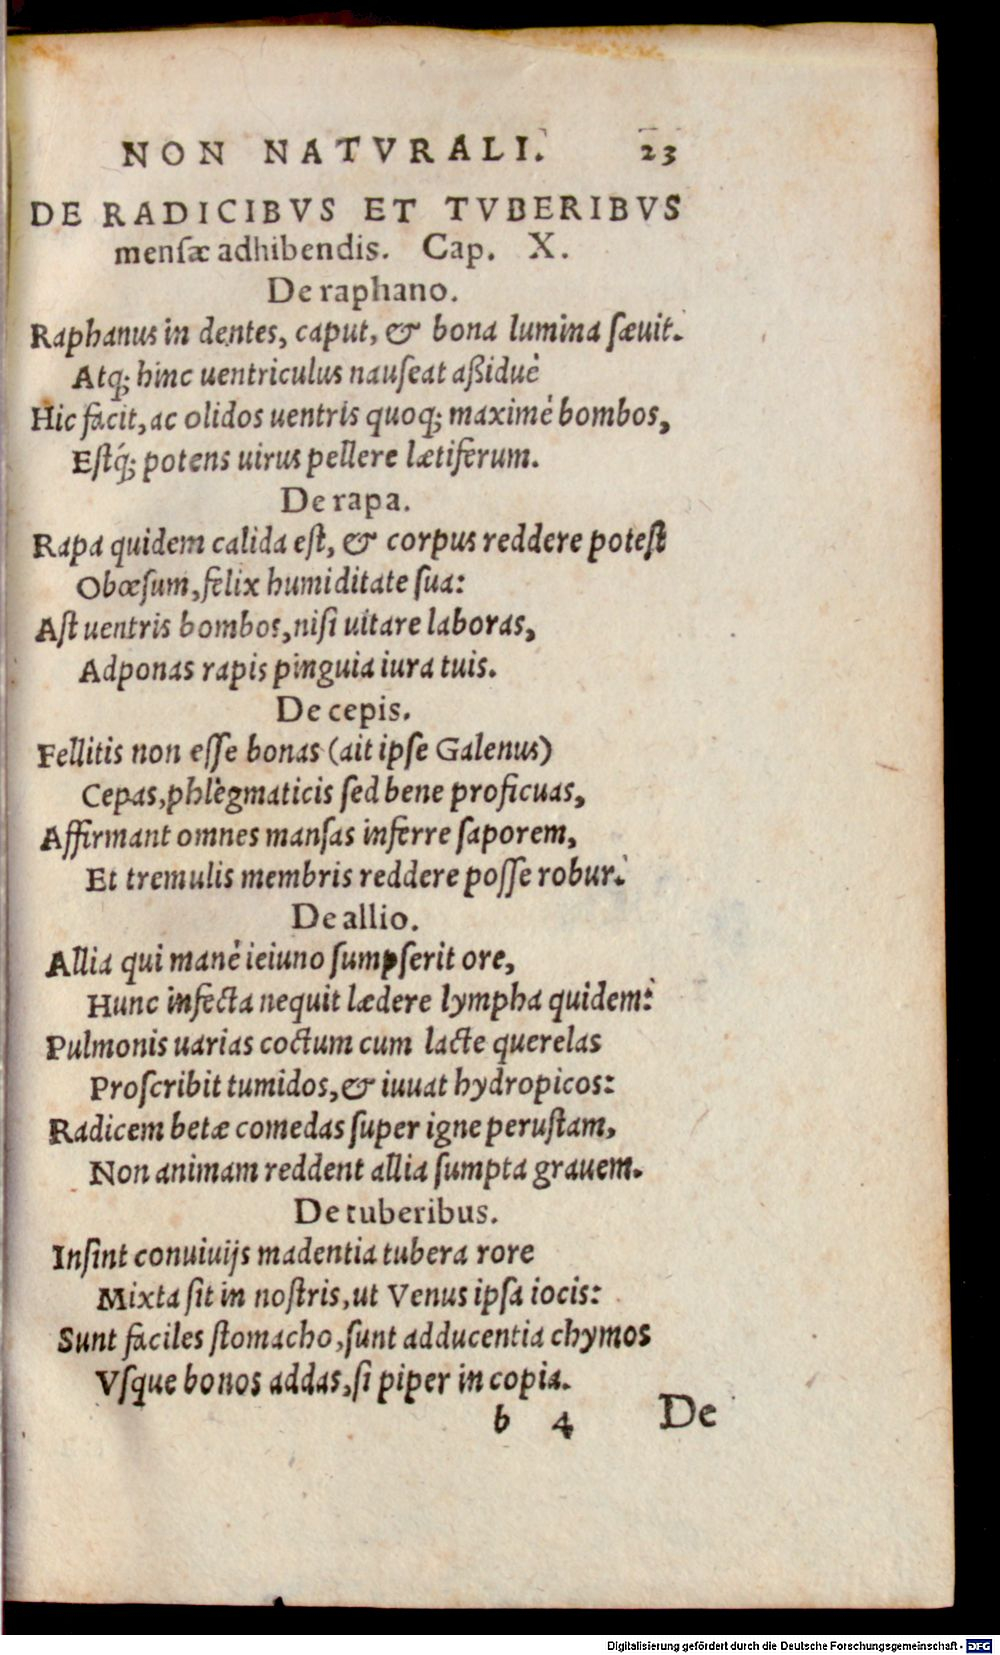 NON NATVRALI. 23
DE RADICIBVS ET TVBERIBVS
mensæ adhibendis. Cap. X.
De raphano.
Raphanus in dentes, caput, & bona lumina sæuit.
Atq; hinc uentriculus nauseat aßiduè
Hic facit, ac olidos uentris quoq; maximè bombos,
Estq́; potens uirus pellere lætiferum.
De rapa.
Rapa quidem calida est, & corpus reddere potest
Obœsum, felix humiditate sua:
Ast uentris bombos, nisi uitare laboras,
Adponas rapis pinguia iura tuis.
De cepis.
Fellitis non esse bonas (ait ipse Galenus)
Cepas, phlegmaticis sed bene proficuas,
Affirmant omnes mansas inferre saporem,
Et tremulis membris reddere posse robur.
De allio.
Allia qui manè ieiuno sumpserit ore,
Hunc infecta nequit lædere lympha quidem:
Pulmonis uarias coctum cum lacte querelas
Proscribit tumidos, & iuuat hydropicos:
Radicem betæ comedas super igne perustam,
Non animam reddent allia sumpta grauem.
De tuberibus.
Insint conuiuijs madentia tubera rore
Mixta sit in nostris, ut Venus ipsa iocis:
Sunt faciles stomacho, sunt adducentia chymos
Vsque bonos addas, si piper in copia.
b 4 De
Digitalisierung gefördert durch die Deutsche Forschungsgemeinschaft - DFG